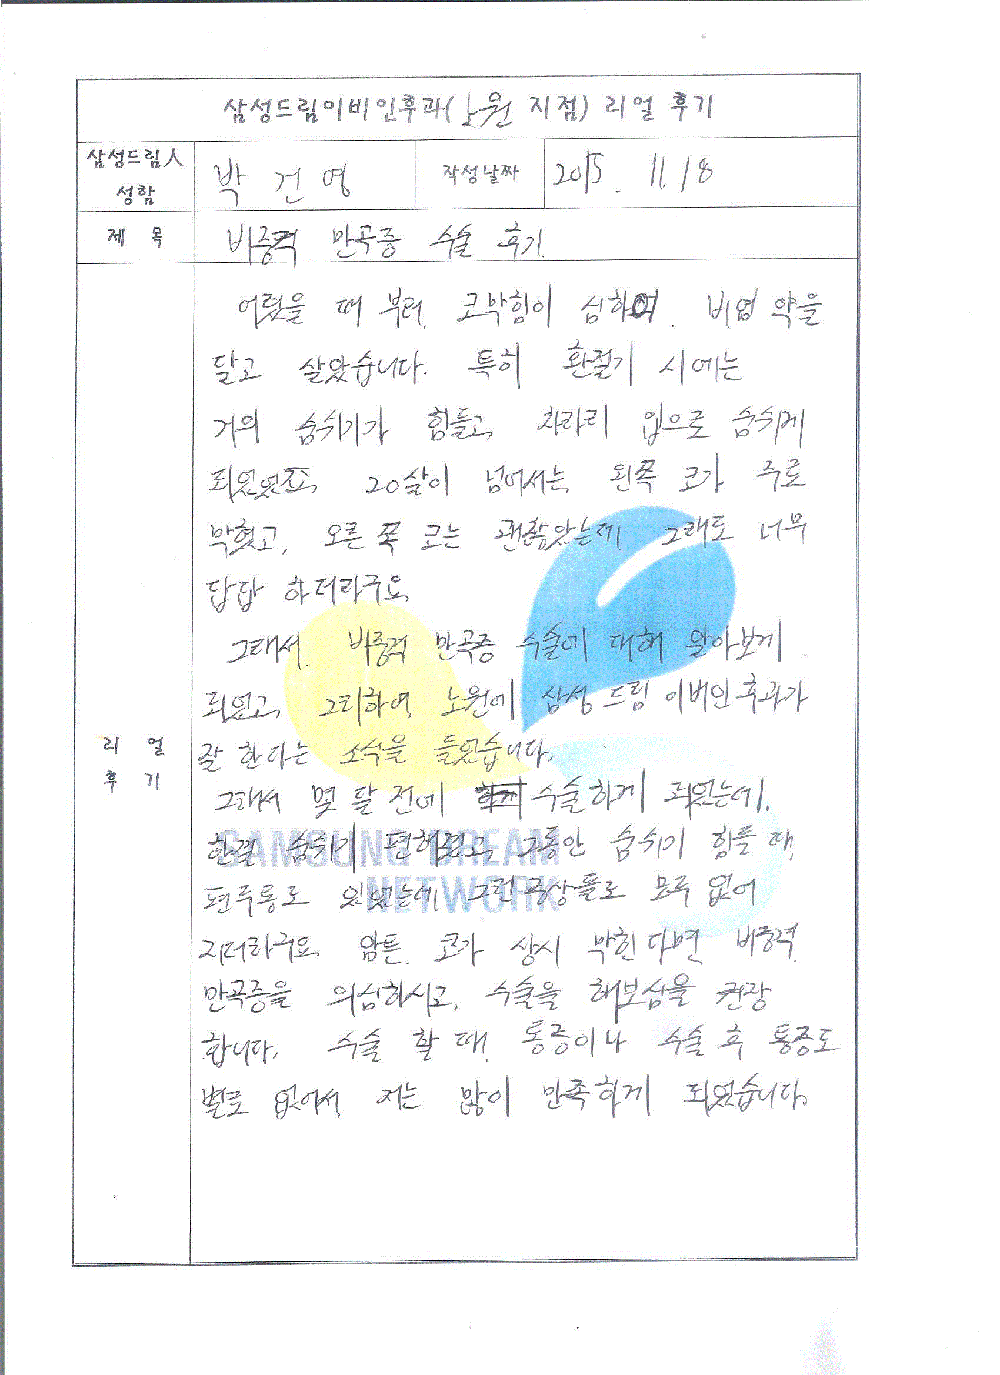 삼성드림이비인후과(노원 지점) 리얼 후기
삼성드림人 성함
박건영
작성날짜
2015. 11. 18
제 목
비중격 만곡증 수술 후기.
리 얼 후 기
어렸을 때 부터, 코막힘이 심하여, 비염 약을
달고 살았습니다. 특히 환절기 시에는
거의 숨쉬기가 힘들고, 차라리 입으로 숨쉬게
되었었죠, 20살이 넘어서는, 왼쪽 코가 주로
막혔고, 오른쪽 코는 괜찮았는데, 그래도 너무
답답 하더라구요,
그래서, 비중격 만곡증 수술에 대해 알아보게
되었고, 그리하여, 노원에 삼성 드림 이비인후과가
잘 한다는 소식을 들었습니다,
그래서 몇 달 전에 수술하게 되었는데,
한결 숨쉬기 편해졌고, 그동안 숨쉬기 힘들 때,
편두통도 있었는데, 그런 증상들도 모두 없어
지더라구요, 암튼, 코가 상시 막힌다면, 비중격,
만곡증을 의심하시고, 수술을 해보심을 권장
합니다, 수술 할 때, 통증이나 수술 후 통증도
별로 없어서, 저는 많이 만족하게 되었습니다,
SAMSUNG DREAM
NETWORK